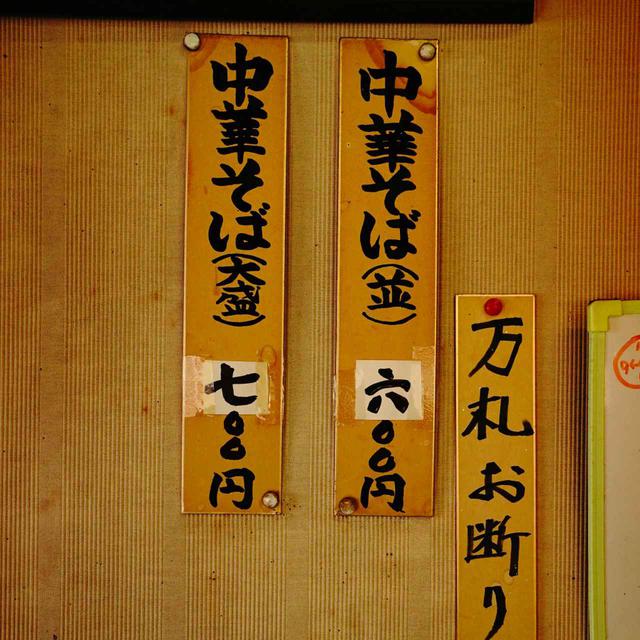 万札お断り
中華そば(並)六〇〇円
中華そば(大盛)七〇〇円